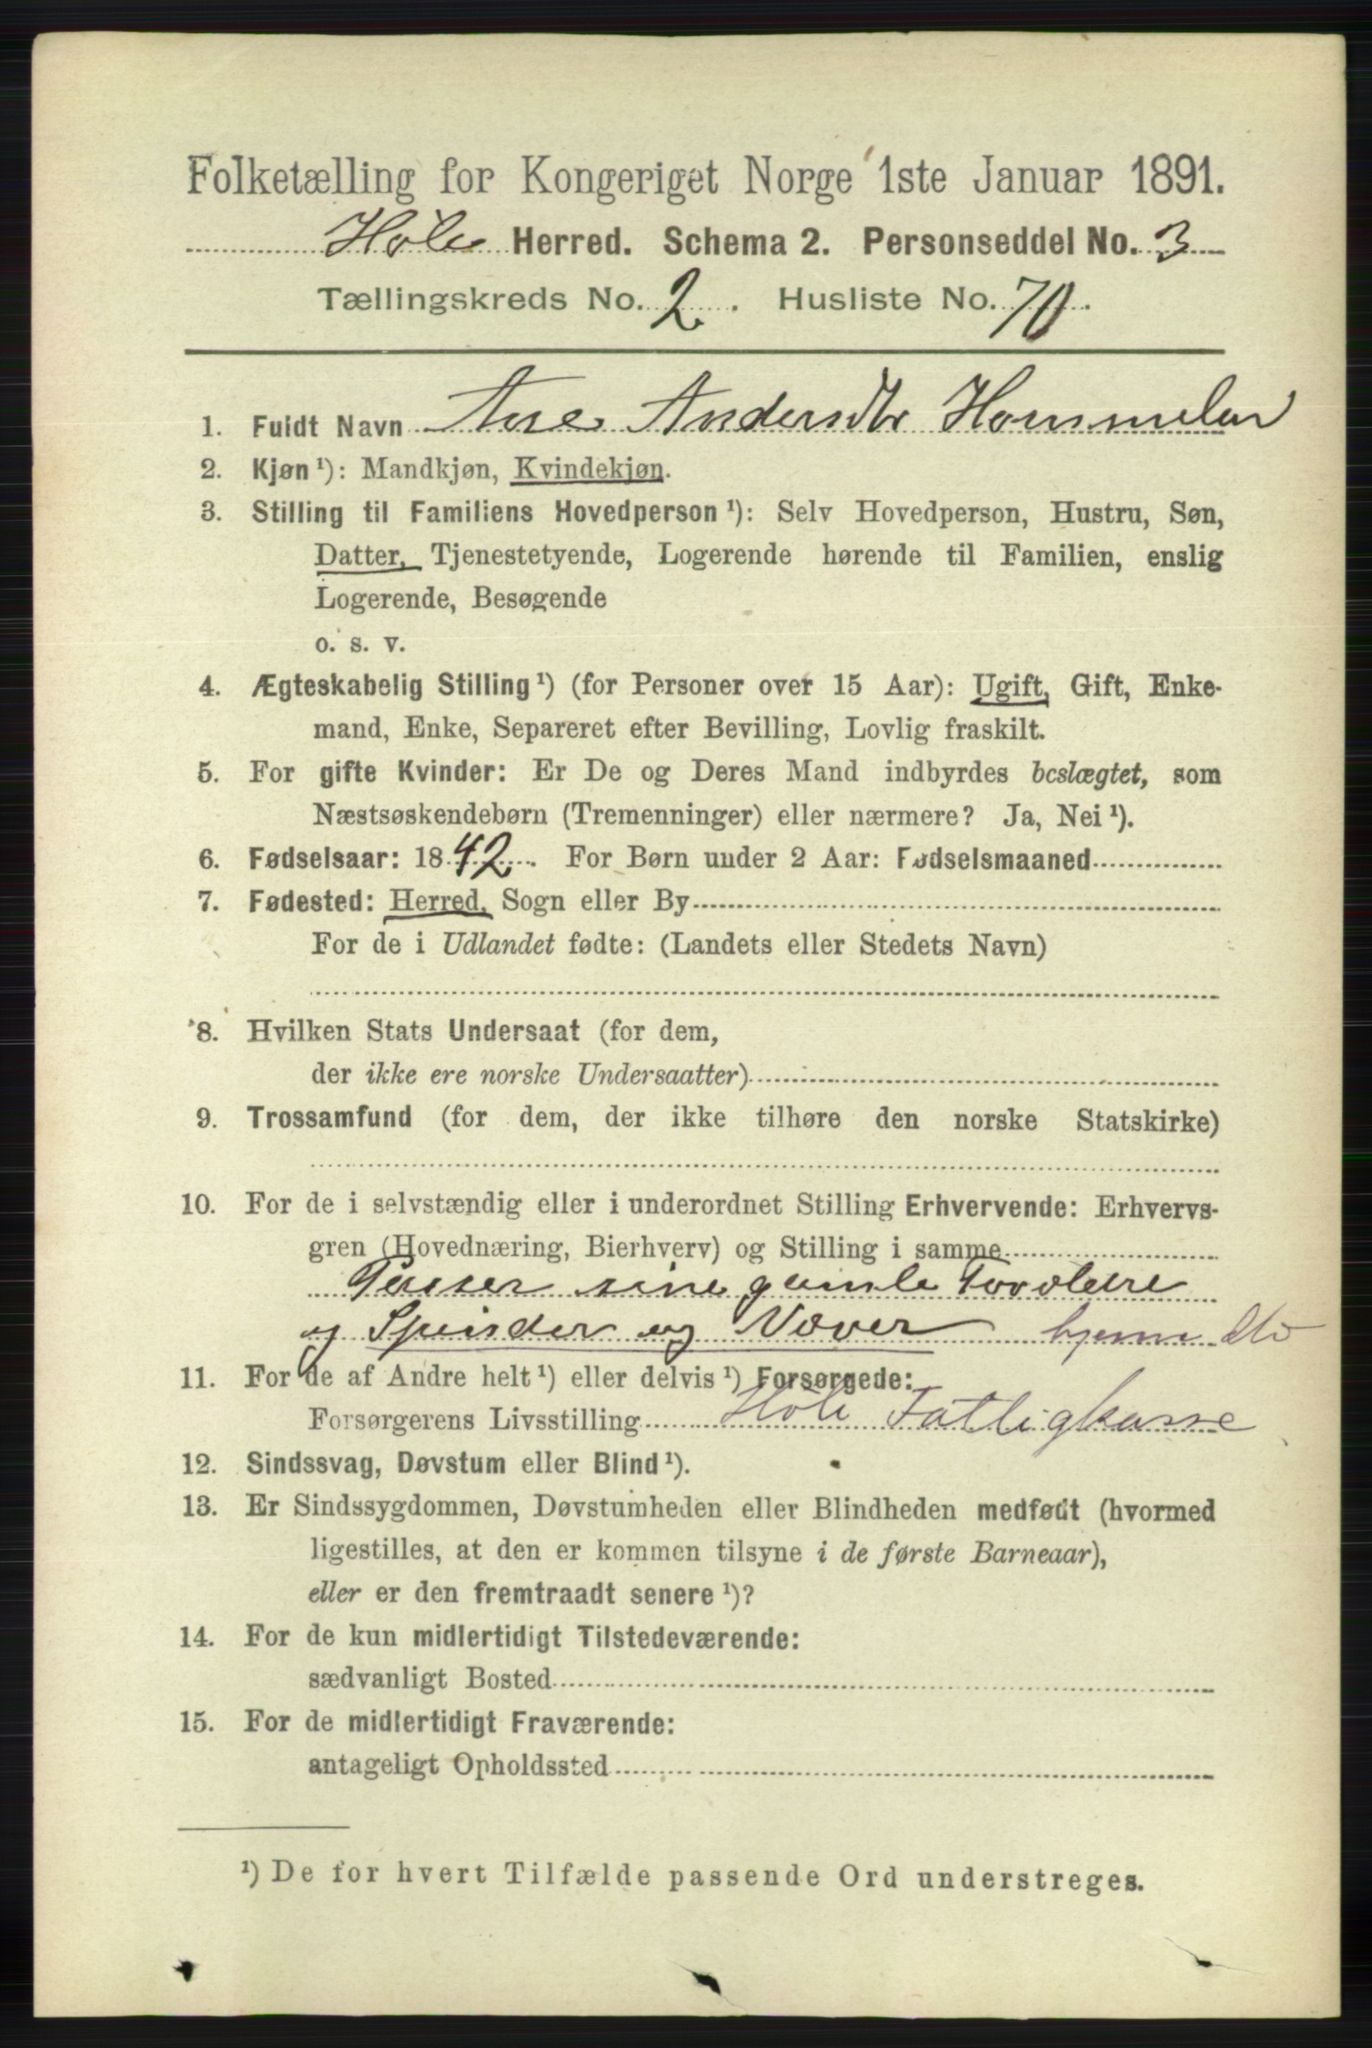 Folketælling for Kongeriget Norge 1ste Januar 1891.
Høle Herred. Schema 2. Personseddel No. 3
Tællingskreds No. 2. Husliste No. 70.
1. Fuldt Navn Ane Andersdtr Hommeland
2. Kjøn ¹): Mandkjøn, Kvindekjøn.
3. Stilling til Familiens Hovedperson ¹): Selv Hovedperson, Hustru, Søn,
Datter, Tjenestetyende, Logerende hørende til Familien, enslig
Logerende, Besøgende
o. s. v.
4. Ægteskabelig Stilling ¹) (for Personer over 15 Aar): Ugift, Gift, Enke-
mand, Enke, Separeret efter Bevilling, Lovlig fraskilt.
5. For gifte Kvinder: Er De og Deres Mand indbyrdes beslægtet, som
Næstsøskendebørn (Tremenninger) eller nærmere? Ja, Nei ¹).
6. Fødselsaar: 1842. For Børn under 2 Aar: Fødselsmaaned
7. Fødested: Herred, Sogn eller By
For de i Udlandet fødte: (Landets eller Stedets Navn)
8. Hvilken Stats Undersaat (for dem,
der ikke ere norske Undersaatter)
9. Trossamfund (for dem, der ikke tilhøre den norske Statskirke)
10. For de i selvstændig eller i underordnet Stilling Erhvervende: Erhvervs-
gren (Hovednæring, Bierhverv) og Stilling i samme
Passer sine gamle Forældre
og Spinder og Væver hjemme
11. For de af Andre helt ¹) eller delvis ¹) Forsørgede:
Forsørgerens Livsstilling Høle Fattigkasse
12. Sindssvag, Døvstum eller Blind ¹).
13. Er Sindssygdommen, Døvstumheden eller Blindheden medfødt (hvormed
ligestilles, at den er kommen tilsyne i de første Barneaar),
eller er den fremtraadt senere ¹)?
14. For de kun midlertidigt Tilstedeværende:
sædvanligt Bosted
15. For de midlertidigt Fraværende:
antageligt Opholdssted
¹) De for hvert Tilfælde passende Ord understreges.